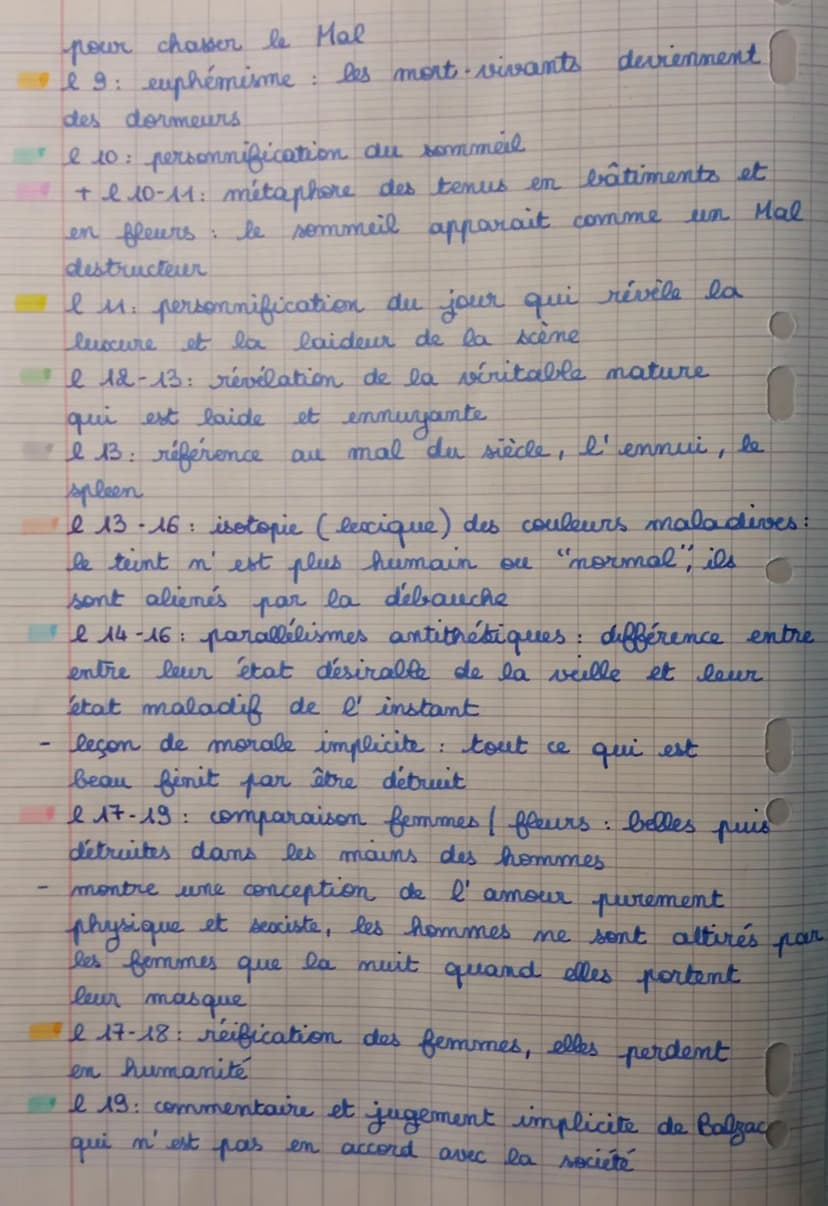 pour chasser le Mal
l 9 : euphémisme : les mort-vivants deviennent
des dormeurs
l 10 : personnification du sommeil
+ l 10-11 : métaphore des tenus en bâtiments et
en fleurs : le sommeil apparait comme un Mal
destructeur
l 11 : personnification du jour qui révèle la
luxure et la laideur de la scène
l 12-13 : révélation de la véritable nature
qui est laide et ennuyante
l 13 : référence au mal du siècle, l'ennui, le
spleen
l 13-16 : isotopie (lexique) des couleurs maladives :
le teint n'est plus humain ou "normal", ils
sont aliénés par la débauche
l 14-16 : parallélismes antithétiques : différence entre
entre leur état désirable de la veille et leur
état maladif de l'instant
- leçon de morale implicite : tout ce qui est
beau finit par être détruit
l 17-19 : comparaison femmes / fleurs : belles puis
détruites dans les mains des hommes
- montre une conception de l'amour purement
physique et sexiste, les hommes ne sont attirés par
les femmes que la nuit quand elles portent
leur masque
l 17-18 : réification des femmes, elles perdent
en humanité
l 19 : commentaire et jugement implicite de Balzac
qui n'est pas en accord avec la société